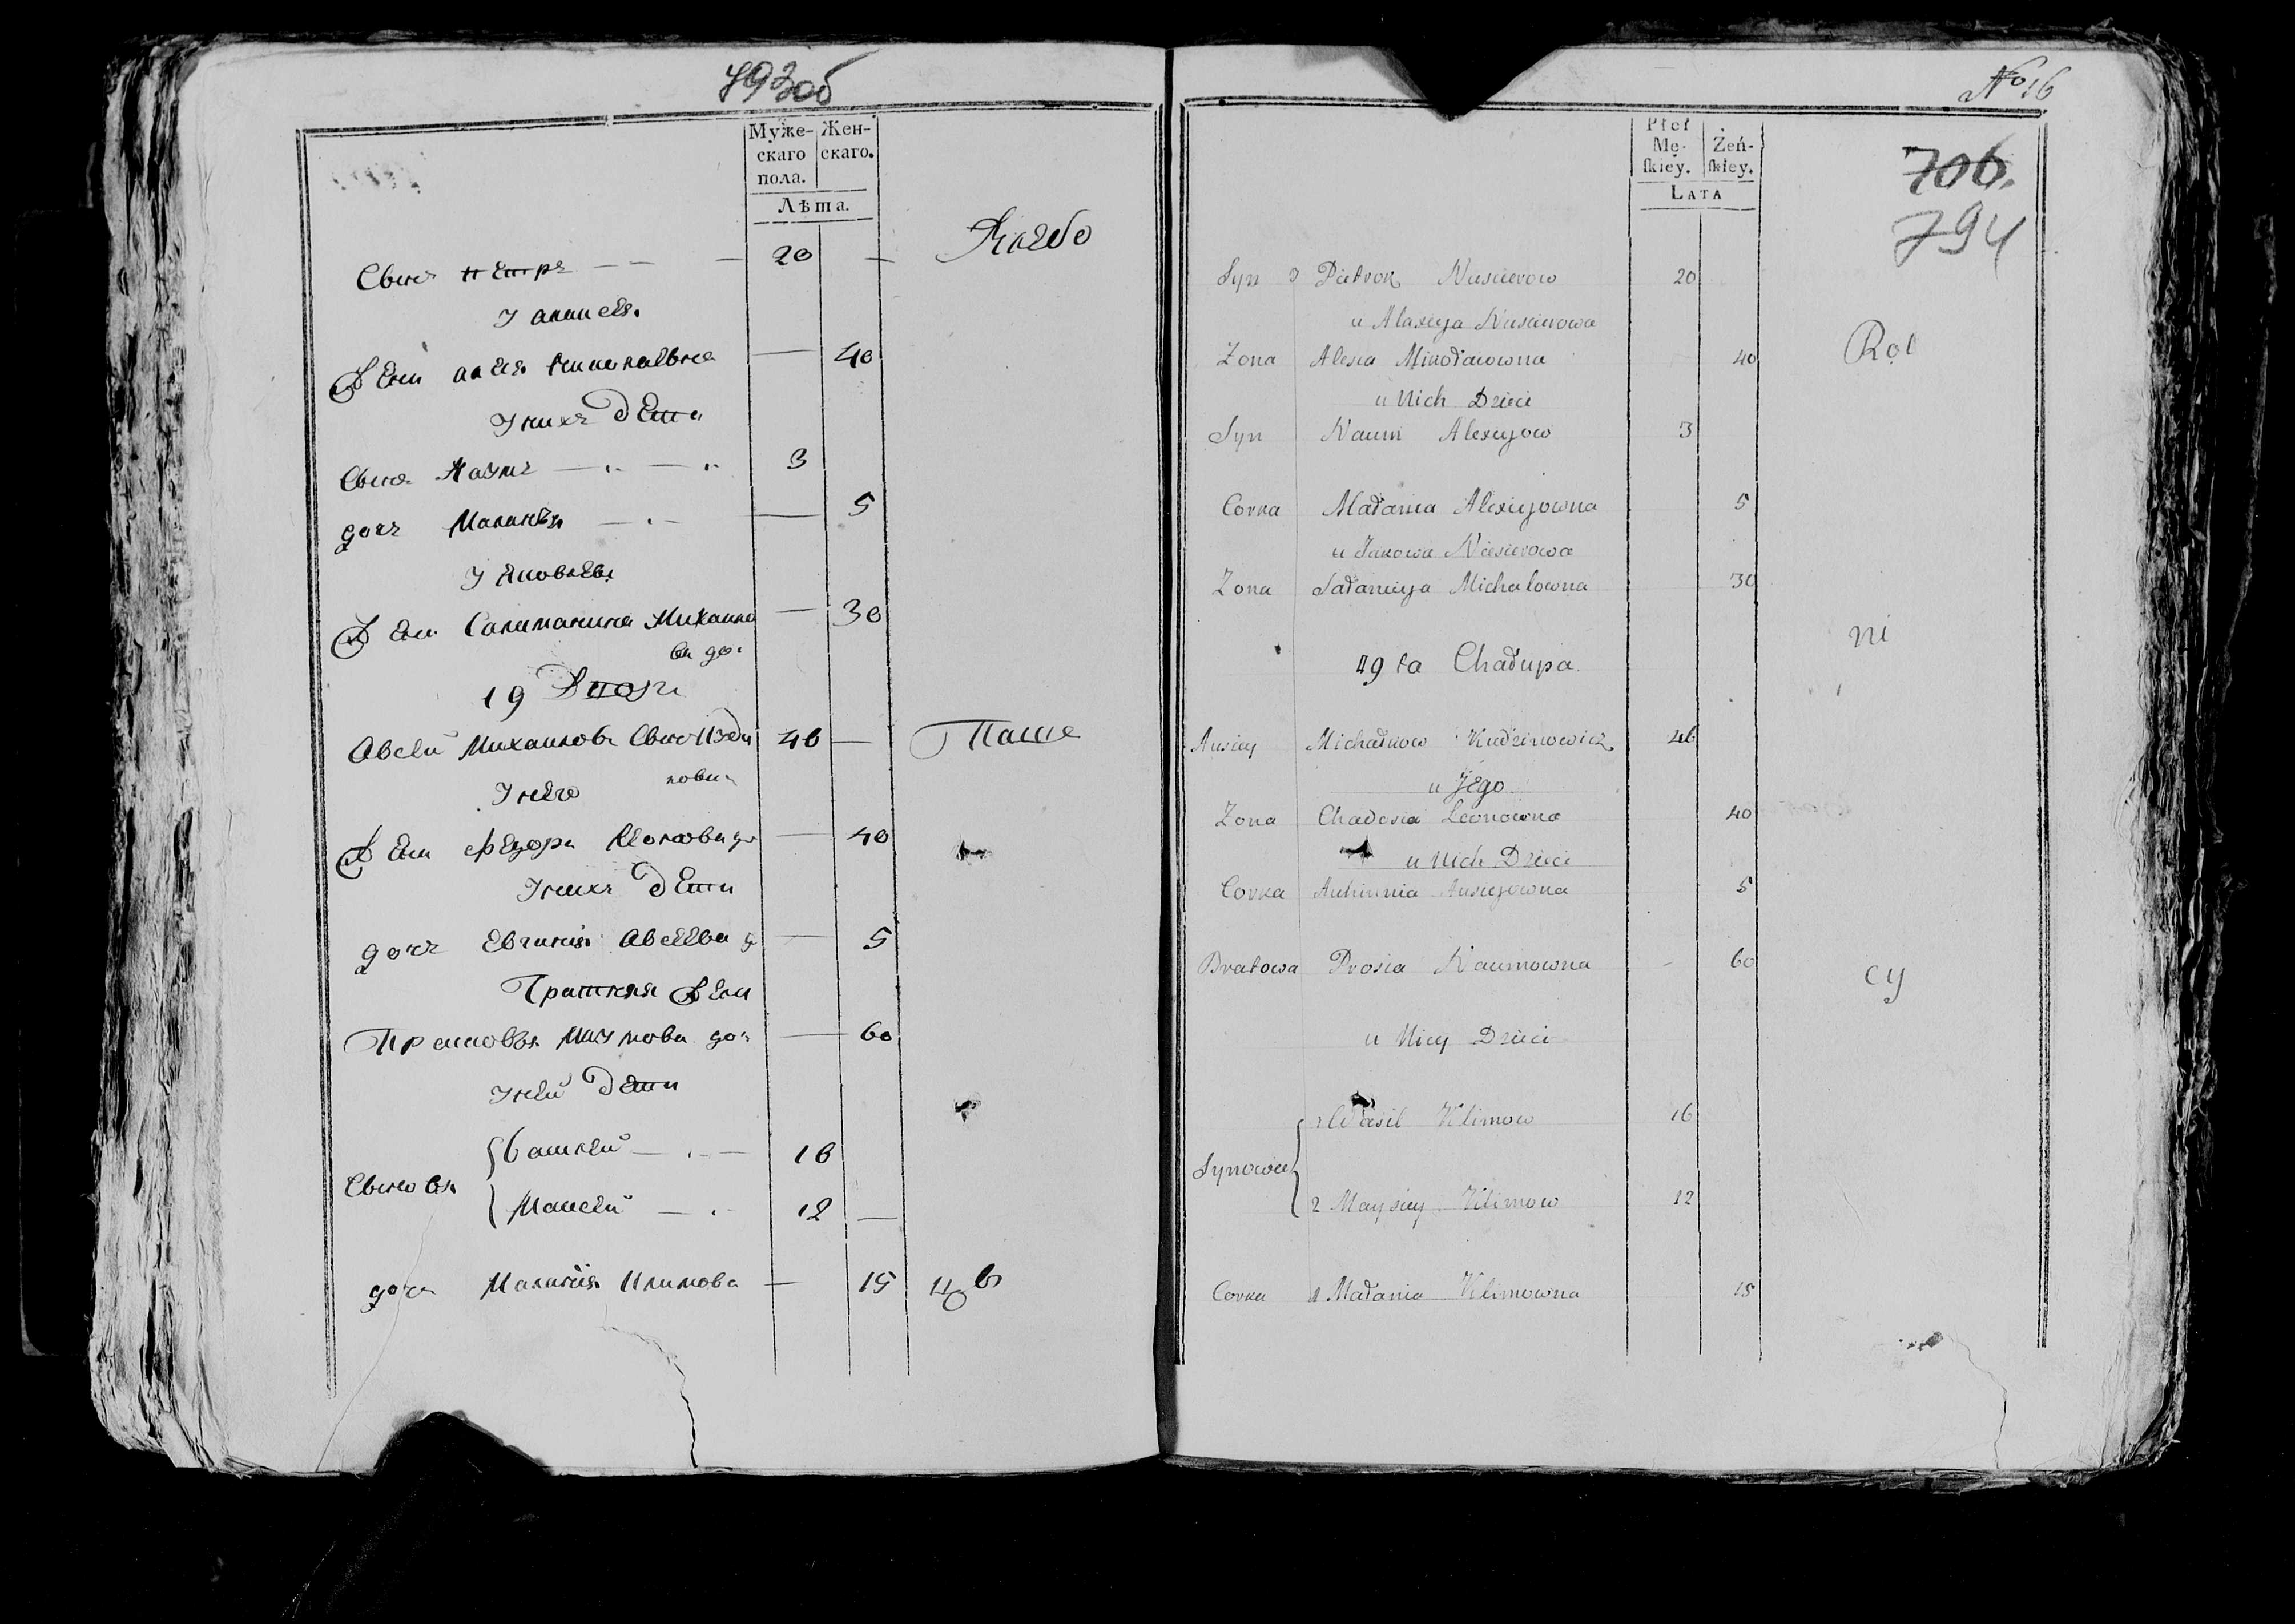 793об
Муже- Жен-
скаго скаго.
пола.
Лѣта.
Хлебо
Сынъ Петръ — — — 20 —
У алексея
Жена алея николаевна — 40
У нихъ дети
Сынъ Наумъ — 3
дочь Маланья — 5
У Якова
Жена Саламанида Михаило — 30
ва до:
19 Дворъ
Авсей Михаиловъ Сынъ 46 — Паше
новичъ
У него
Жена Федора — 40
У нихъ дети
дочь Евгиния Авсеева д — 5
Братняя Жена
Прасковья Наумова до: — 60
У ней дети
Сыновья
Василей — 16
Мосей — 12 —
дочь Малания Климова — 15 цы
№ 16
Płci
Mę- Żeń-
skiey. skiey.
LATA
706.
794
Syn 3 Pietrok Nuscierow 20
u Alaxieja Nuscierowa
Żona Alesia Mikołaiowna 40 Rol
u Nich Dzieci
Syn Naum Alexiejow 3
Corka Małania Alexiejowna 5
u Jakowa Niescierowa
Żona Sałamieja Michałowna 30
ni
19ta Chałupa
Ausiey Michałkow Kudzinowicz 46
u Jego
Żona Chadosia Leonowna 40
u Nich Dzieci
Corka Auhinnia Ausiejowna 5
Bratowa Prosia Naumowna - 60 cy
u Niey Dzieci
Synowie
1 Wasil Klimow 16
2 Maysiey Klimow 12
Corka 1 Małania Klimowna 15